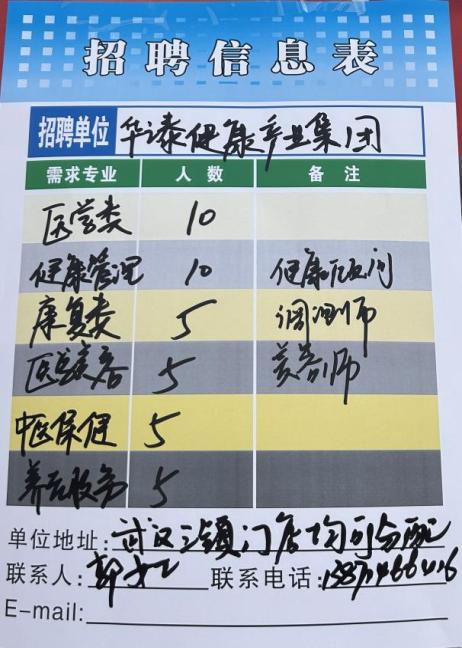 招聘信息表
招聘单位 华泰健康产业集团
需求专业 人数 备注
医学类 10
健康管理 10 健康顾问
康复类 5 调测师
医学美容 5 美善师
中医保健 5
养老服务 5
单位地址：武汉三镇门店均可分配
联系人： 联系电话：
E-mail: